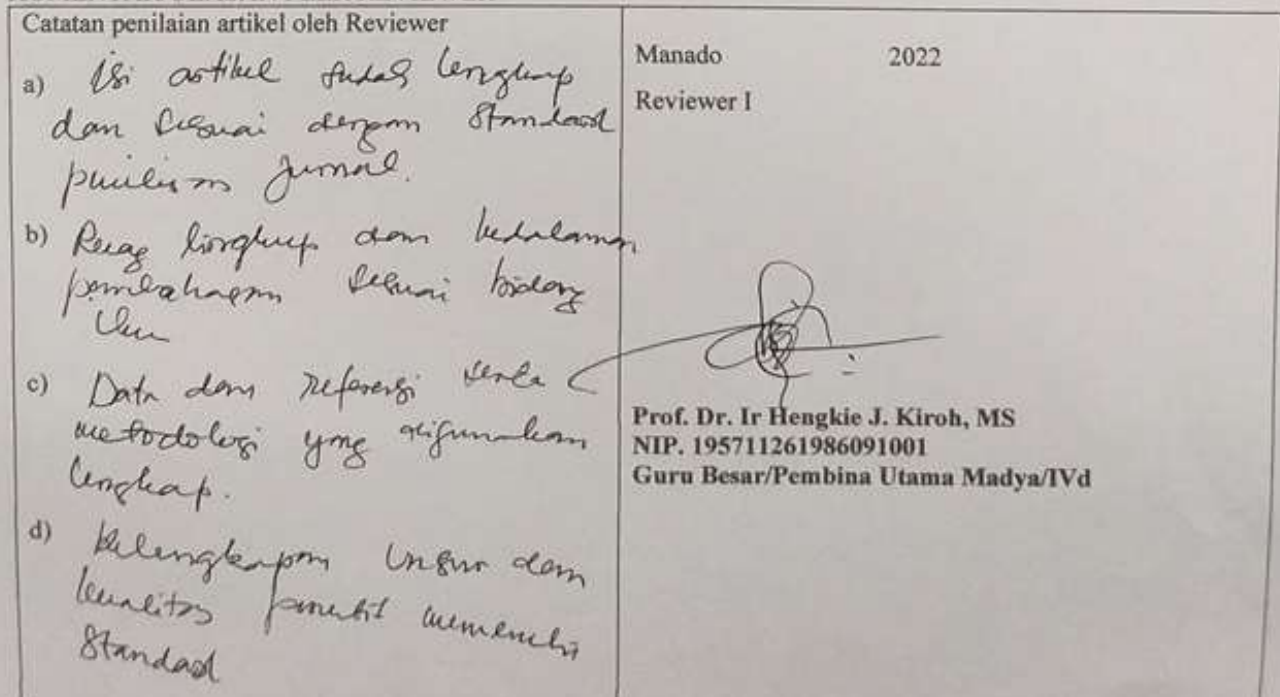 Catatan penilaian artikel oleh Reviewer
a) Isi artikel sudah lengkap
dan sesuai dengan Standard
penulisan Jurnal.
b) Ruang lingkup dan kedalaman
pembahasan sesuai bidang
Ilmu
c) Data dan referensi serta
metodologi yang digunakan
lengkap.
d) Kelengkapan Unsur dan
kualitas penerbit memenuhi
Standard
Manado 2022
Reviewer I
Prof. Dr. Ir Hengkie J. Kiroh, MS
NIP. 195711261986091001
Guru Besar/Pembina Utama Madya/IVd